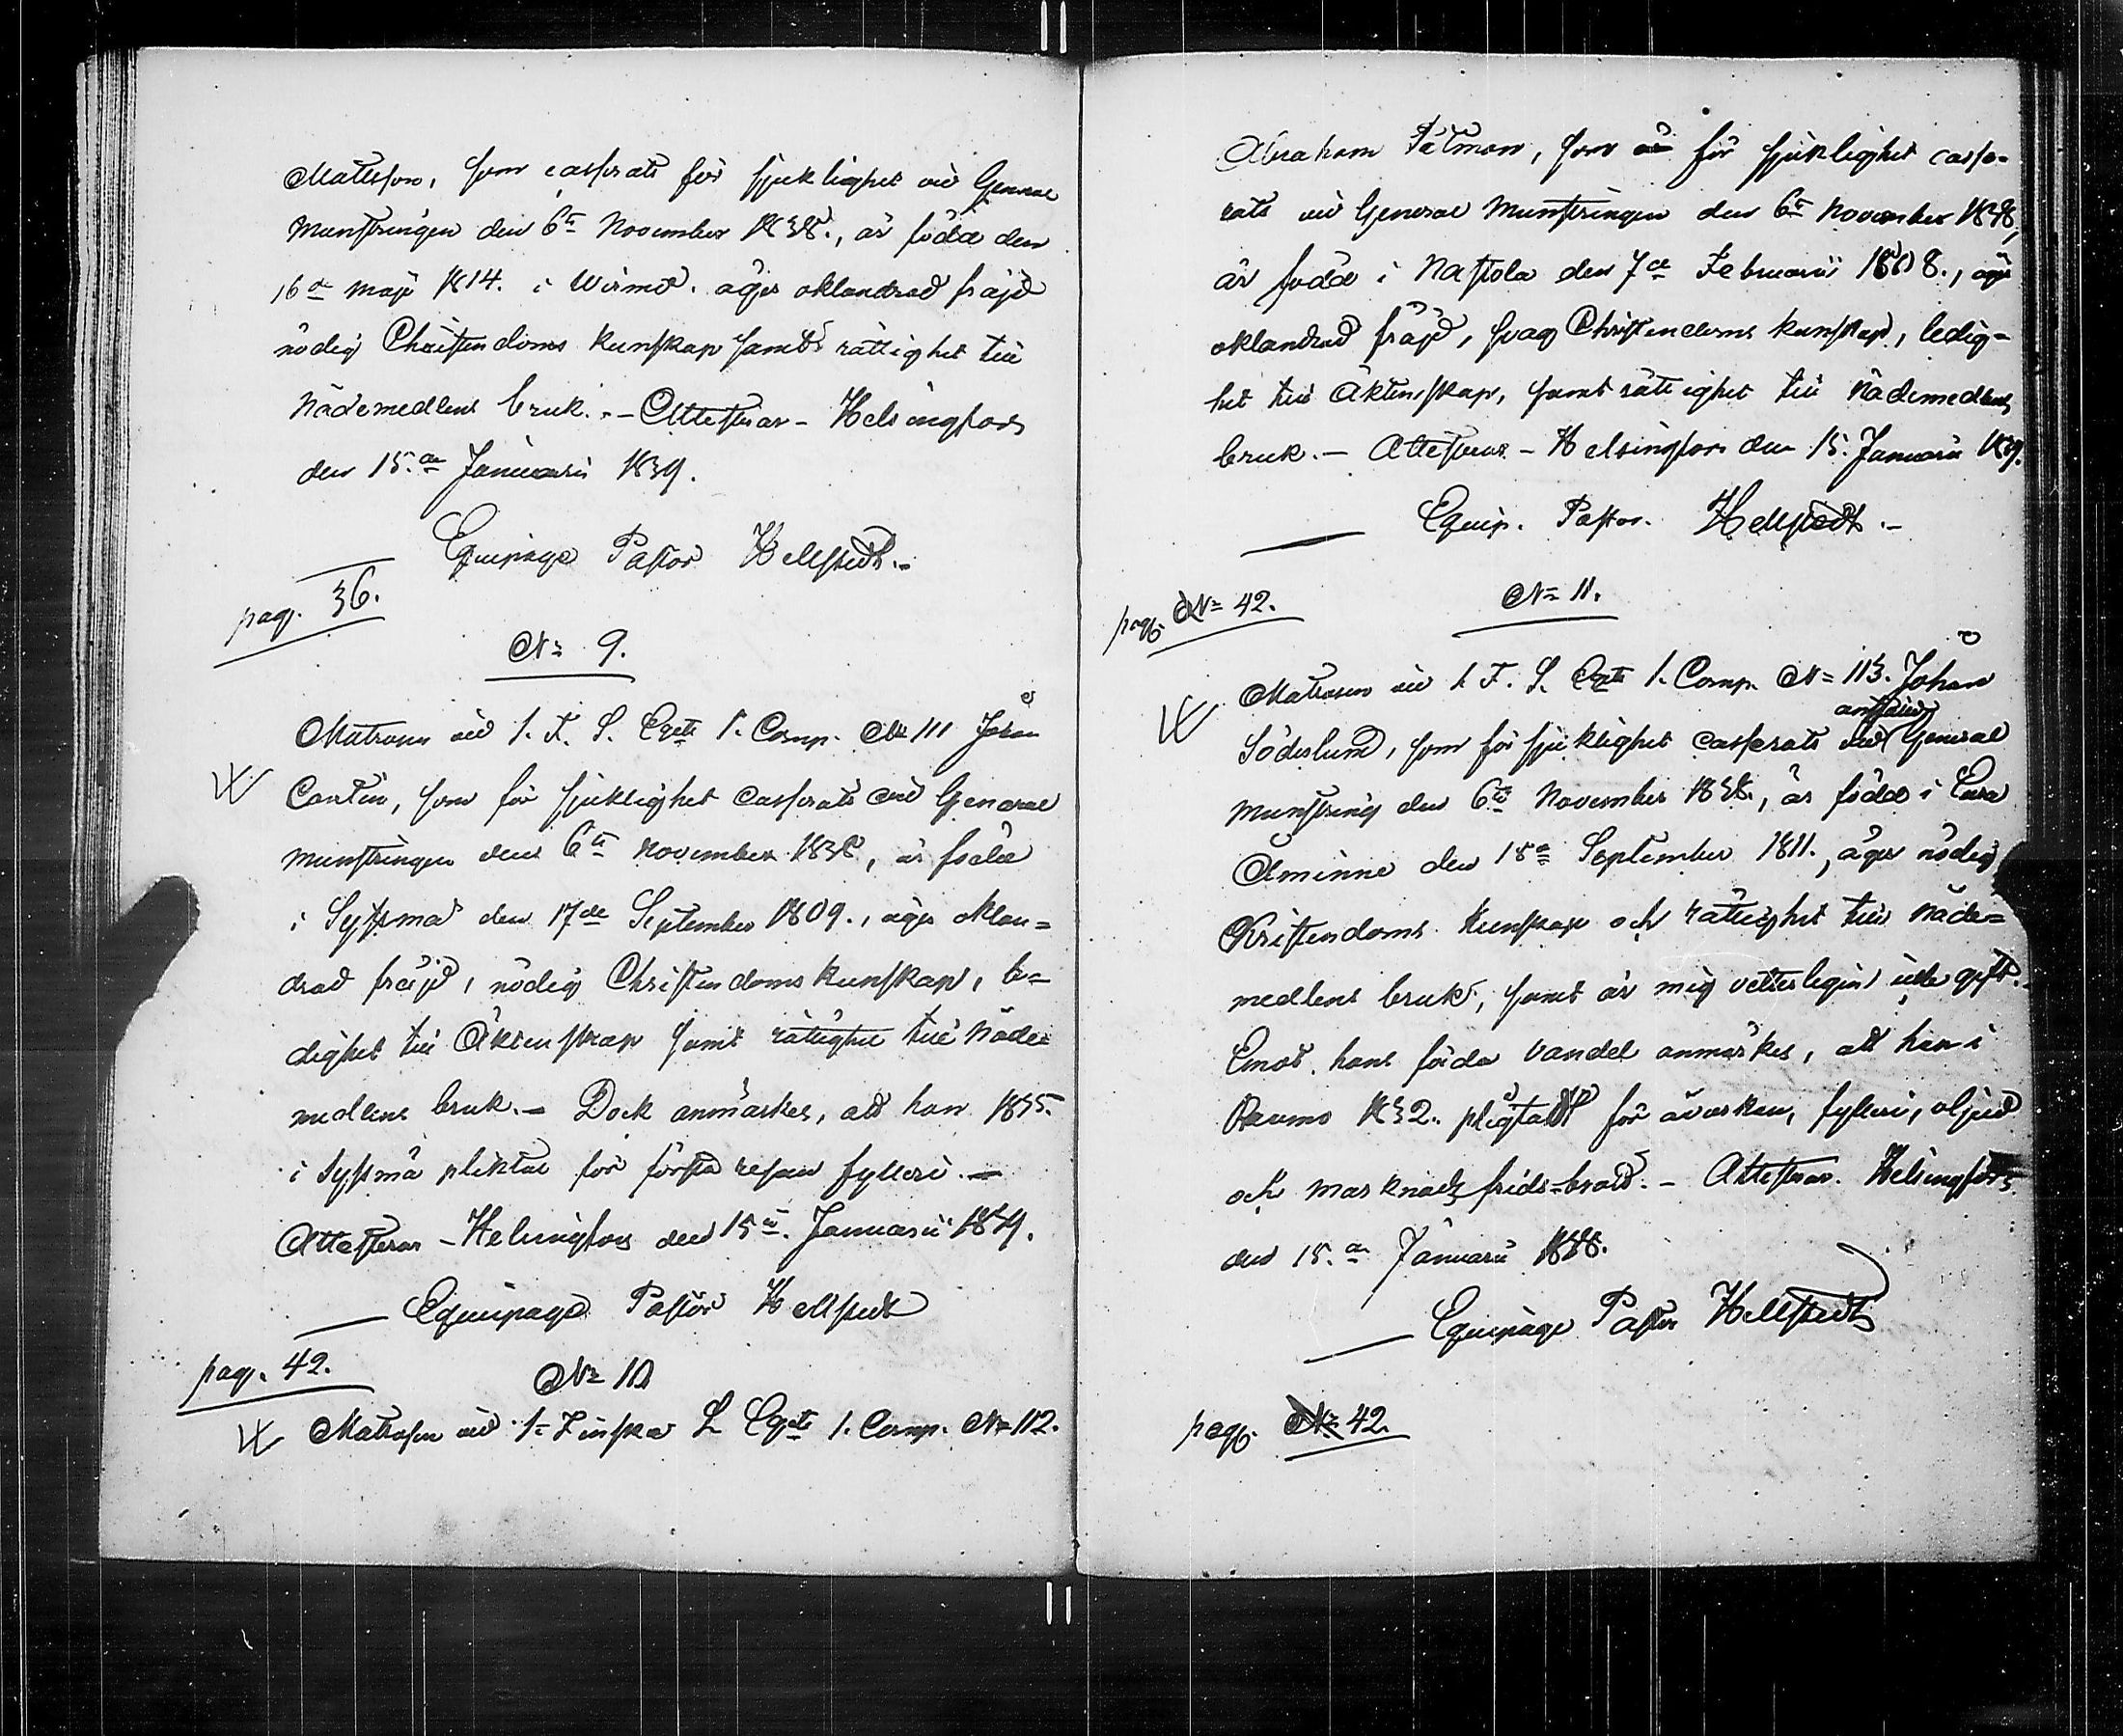 Matsson, som casserats för sjuklighet vid General
Munstringen den 6te November 1838., är född den
16de Maji 1814. i Wirmo. äger oklandrad fräjd
nödig Christendoms kunskap samt rättighet till
Nådemedlens bruk. - Attesterar - Helsingfors
den 15.de Januarii 1839.
Equipage Pastor Hellstedt.
pag. 36.
N= 9.
Matrosen vid 1. F. S. Eqts 1. Comp. N= 111 Johan
Cantin, som för sjuklighet casserats vid General
munstringen den 6te November 1838, är född
i Syssmä den 17de September 1809., äger oklan=
drad fräjd, nödig Christendoms kunskap, le=
dighet till Äktenskap samt rättighet till Nåde=
medlens bruk. - Dock anmärkes, att han 1835.
i Syssmä pliktat för första resan fylleri. -
Attesterar - Helsingfors den 15de. Januarii 1839.
Equipage Pastor Hellstedt
pag. 42.
N= 10
Matrosen vid 1= Finska S. Eqts 1. Comp. N= 112.
Abraham Påtman, som för sjuklighet casse-
rats vid General Munstringen den 6te November 1838,
är född i Nastola den 7de Februarii 1808., äger
oklandrad fräjd, svag Christendoms kunskap, ledig=
het till Äktenskap, samt rättighet till Nådemedlens
bruk. - Attesterar - Helsingfors den 15. Januarii 1839.
Equip. Pastor. Hellstedt. -
pag. N= 42.
N= 11.
Matrosen vid 1. F. S. Eqts 1. Comp. N= 113. Johan
Söderlund, som för sjuklighet casserats vid General
Munstring den 6te November 1838., är född i Eura
Åminne den 15de September 1811., äger nödig
Kristendoms kunskap och rättighet till Nåde=
medlens bruk, samt är mig veterligen icke gift.
Emot hans förda vandel anmärkes, att han i
Raumo 1832. pligtadt för åverkan, fylleri, oljud
och marknads frids-brott. - Attesterar. Helsingfors
den 15.de Januarii
Equipage Pastor Hellstedt
pag. N= 42.